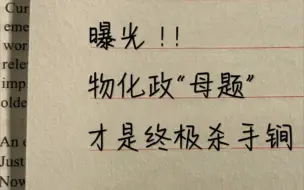 Cur
eme
wor
rele
imp
olde
An e
Just
Now
曝光!!
物化政“母题”
才是终极杀手锏